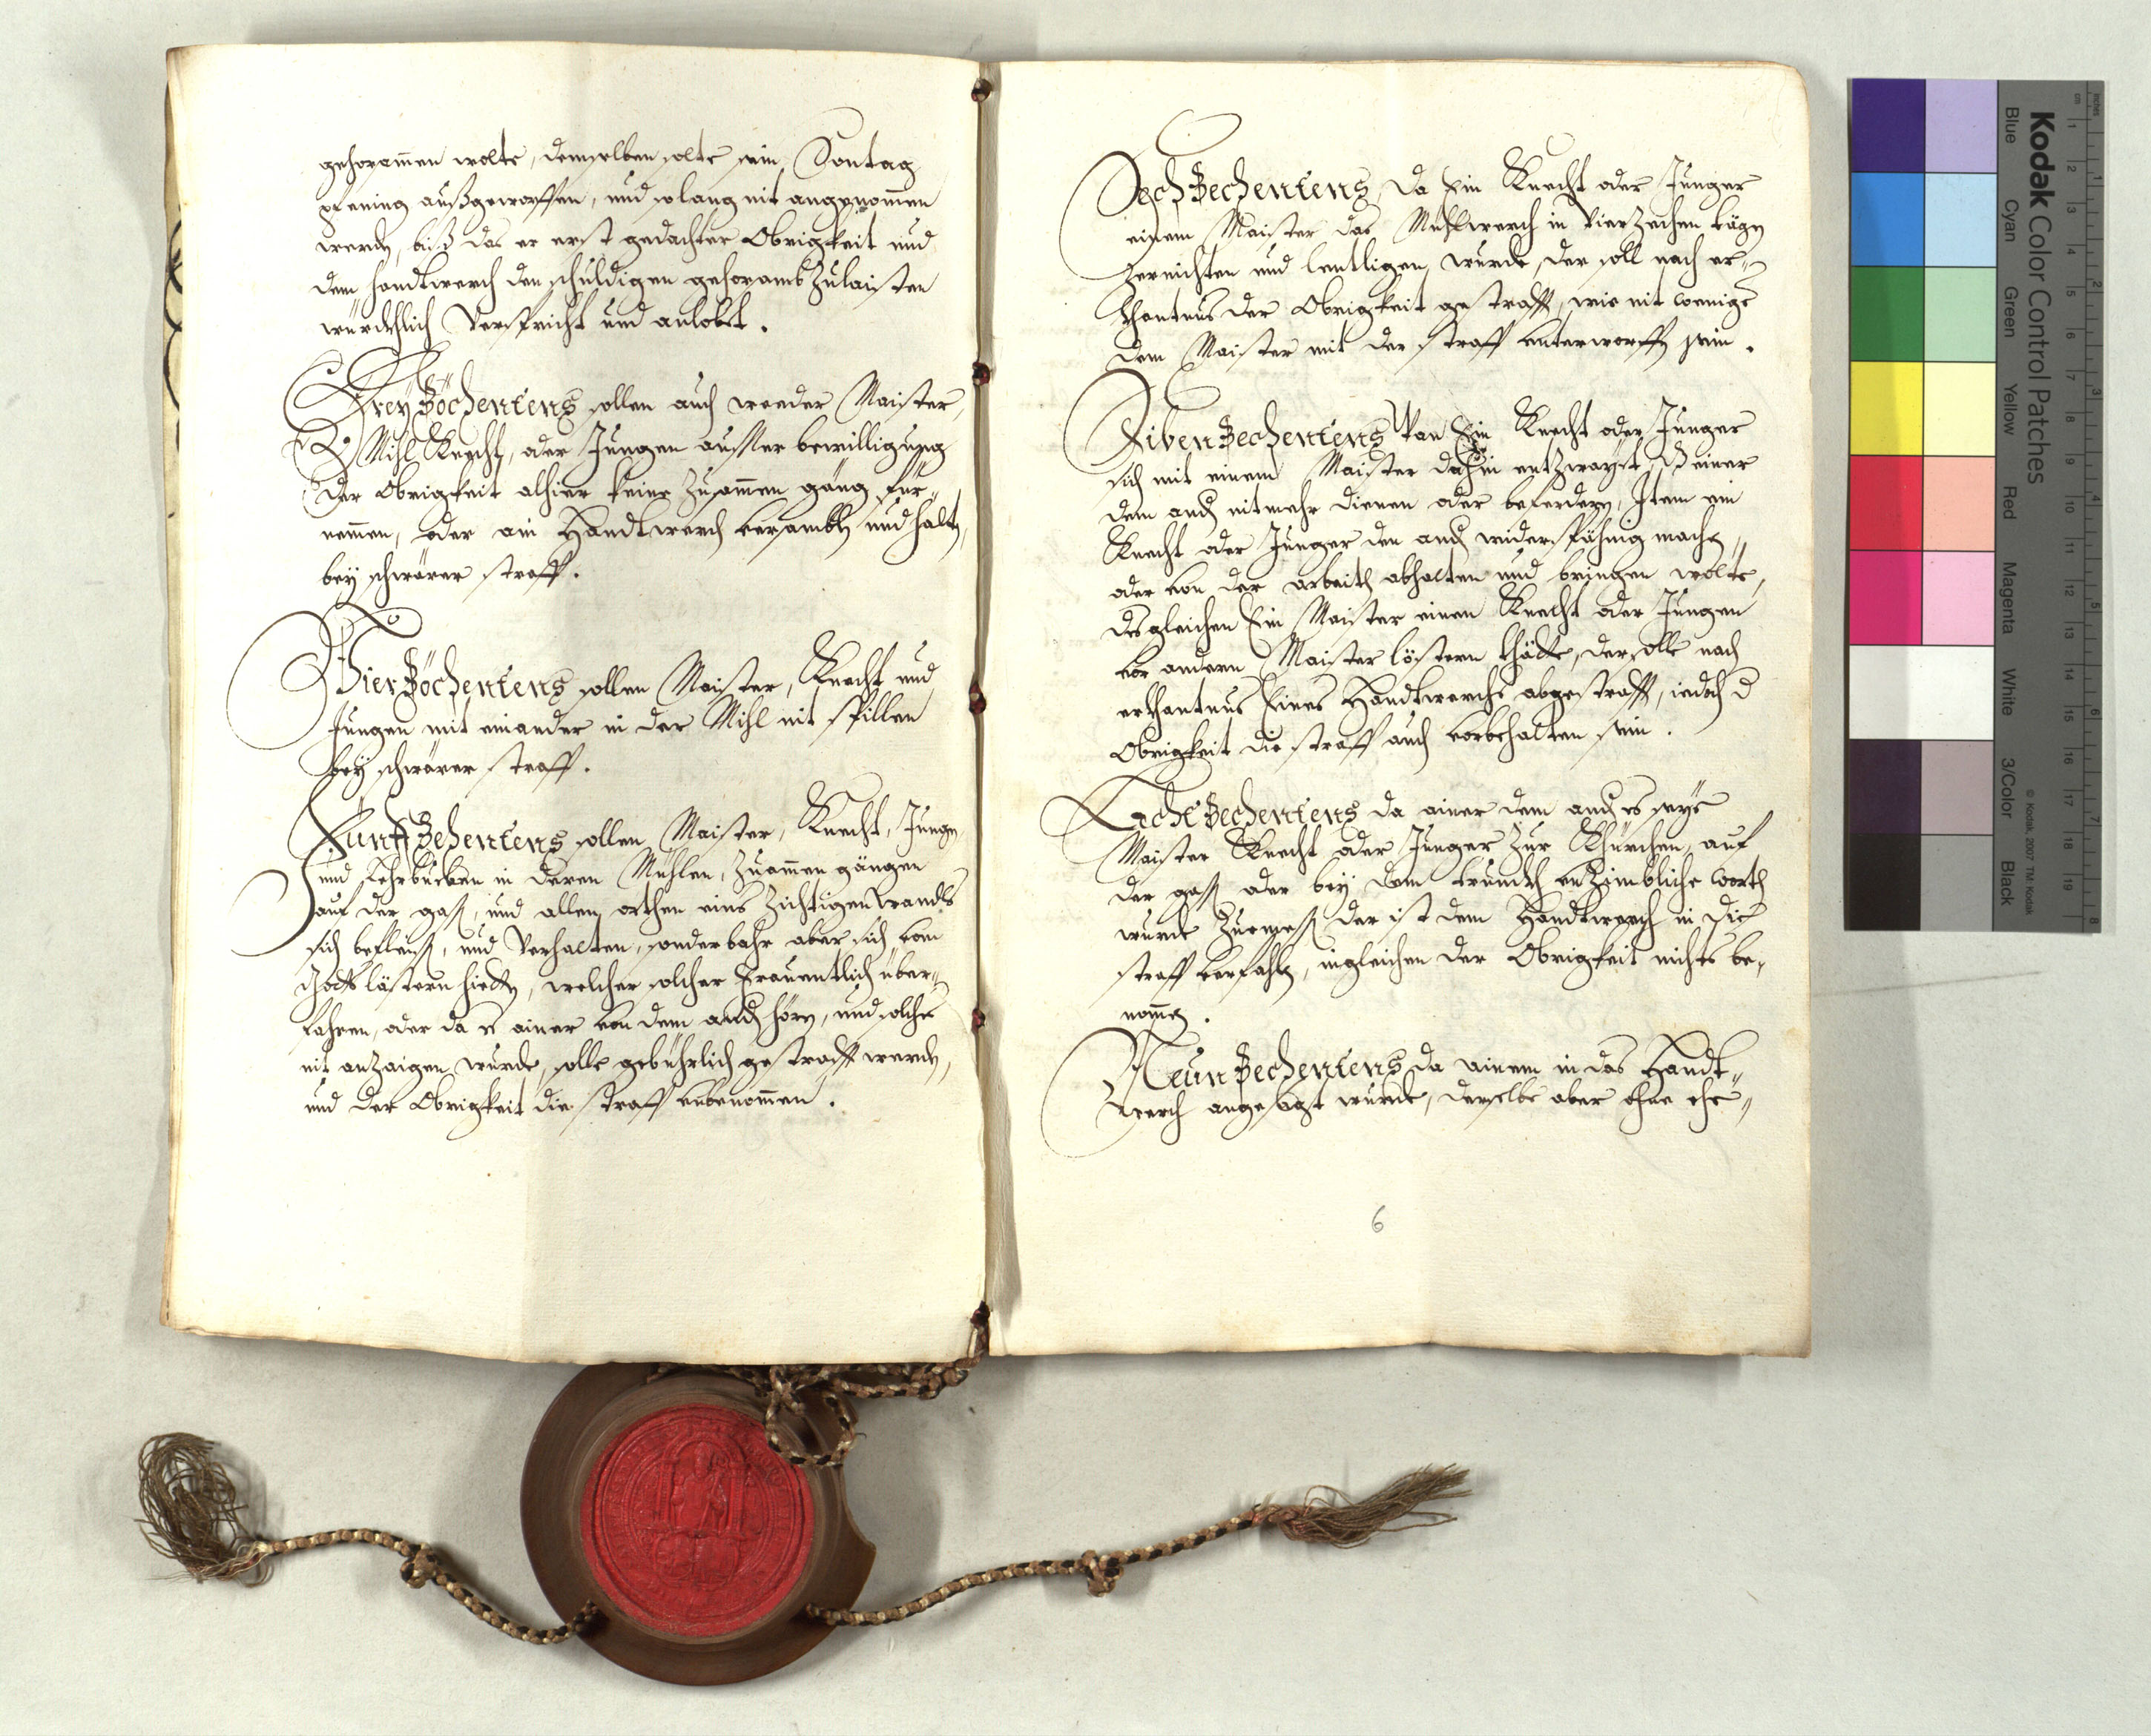 gehorammen wolte, demselben solte sein Sontag
pfening außgeworffen, und solang nit angenommen
werden, biß das er erst gedachter Obrigkeit und
dem handtwerch den schuldigen gehoramb zulaisten
würckhlich Verspricht und anlobt.
Dreyzöchentens sollen auch weeder Maister,
Mihl Knecht, oder Jungen ausser bewilligung
der Obrigkeit alhier keine zusammen gäng für„
nemmen, oder ain Handtwerch versambln und halten,
bey schwärer straff.
Vierzöchentens sollen Maister, Knecht und
Jungen mit einander in der Mihl nit spillen
bey schwärer straff.
Funffzehentens sollen Maister, Knecht, Jungen
und Lehrbueben in deren Mühlen, zusammen gängen
auf der gass, und allen orthen eins zichtigen wandls
sich befleissen, und Verhalten, sonderbahr aber sich vom
Gotts lästern hietten, welcher solcher Frauentlich über„
fahren, oder da es ainer von dem andern hören, und solches
nit anzaigen wurde, solle gebührlich gestrafft werden,
und der Obrigkeit die straff unbenommen.
Sechzechentens, da Ein Knecht oder Junger
einem Maister das Mühlwerch in Vierzechen tägen
zerrichten und wurde, der soll nach er„
khantnus der Obrigkeit gestrafft, wie nit weniger
dem Maister mit der straff unterworffen sein.
Sibenzechentens Wan Ein Knecht oder Junger
sich mit einem Maister dahin entzwayet, dß einer
dem andern nitmehr dienen oder befördern, Item ein
Knecht oder Junger den andern widerspähnig machen,
oder von der arbeith abhalten und bringen wolte,
desgleichen Ein Maister einen Knecht oder Jungen
vor andern Maister löstern thätte, der solle nach
erkhantnus Eines Handtwerchs abgestrafft, iedoch d
Obrigkeit die straff auch vorbehalten sein.
Achtzechentens da ainer dem andern es seye
Maister Knecht oder Junger zur Khürchen, auf
der gass oder bey dem trunckh unzimbliche worth
wurde zuemessen der ist dem Handtwerch in die
straff verfahlen, ingleichen der Obrigkeit nichts be„
nommen.
Neunzechentens da ainem in das Handt„
werch angesagt wurde, derselbe aber ohne ehe„
6
Kodak Color Control Patches
© Kodak, 2007 TM: Kodak
Blue Cyan Green Yellow Red Magenta White 3/Color Black
inches 1 2 3 4 5 6 7 8
cm 1 2 3 4 5 6 7 8 9 10 11 12 13 14 15 16 17 18 19